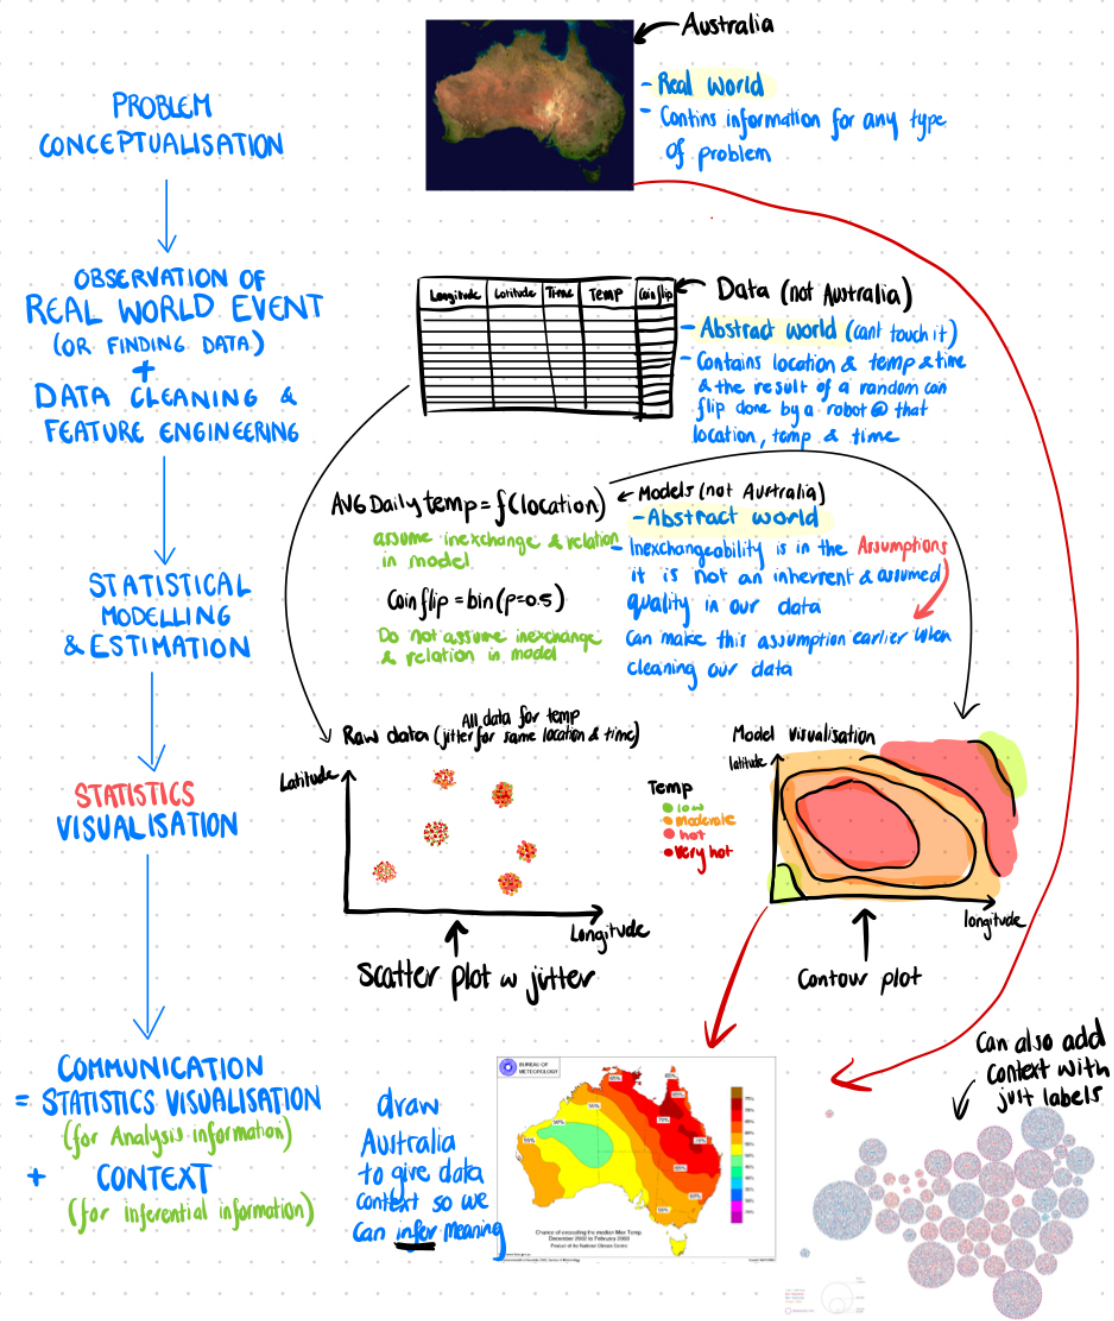 PROBLEM
CONCEPTUALISATION
OBSERVATION OF
REAL WORLD EVENT
(OR FINDING DATA)
+
DATA CLEANING &
FEATURE ENGINEERING
STATISTICAL
MODELLING
& ESTIMATION
STATISTICS
VISUALISATION
COMMUNICATION
= STATISTICS VISUALISATION
(for Analysis information)
+ CONTEXT
(for inferential information)
Australia
- Real world
- Contins information for any type
of problem
Longitude Latitude Time Temp Coin flip
Data (not Australia)
- Abstract world (cant touch it)
- Contains location & temp & time
& the result of a random coin
flip done by a robot @ that
location, temp & time
AVG Daily temp = f(location)
assume inexchange & relation
in model
Coin flip = bin(p=0.5)
Do not assume inexchange
& relation in model
Models (not Australia)
- Abstract world
- Inexchangeability is in the Assumptions
it is not an inherrent & assumed
quality in our data
Can make this assumption earlier when
cleaning our data
All data for temp
Raw data (jitter for same location & time)
Latitude
Longitude
Scatter plot w jitter
Temp
low
moderate
hot
very hot
Model visualisation
latitude
longitude
Contour plot
draw
Australia
to give data
context so we
can infer meaning
BUREAU OF
METEOROLOGY
Chance of exceeding the median Max Temp
December 2002 to February 2003
Product of the National Climate Centre
Can also add
context with
just labels